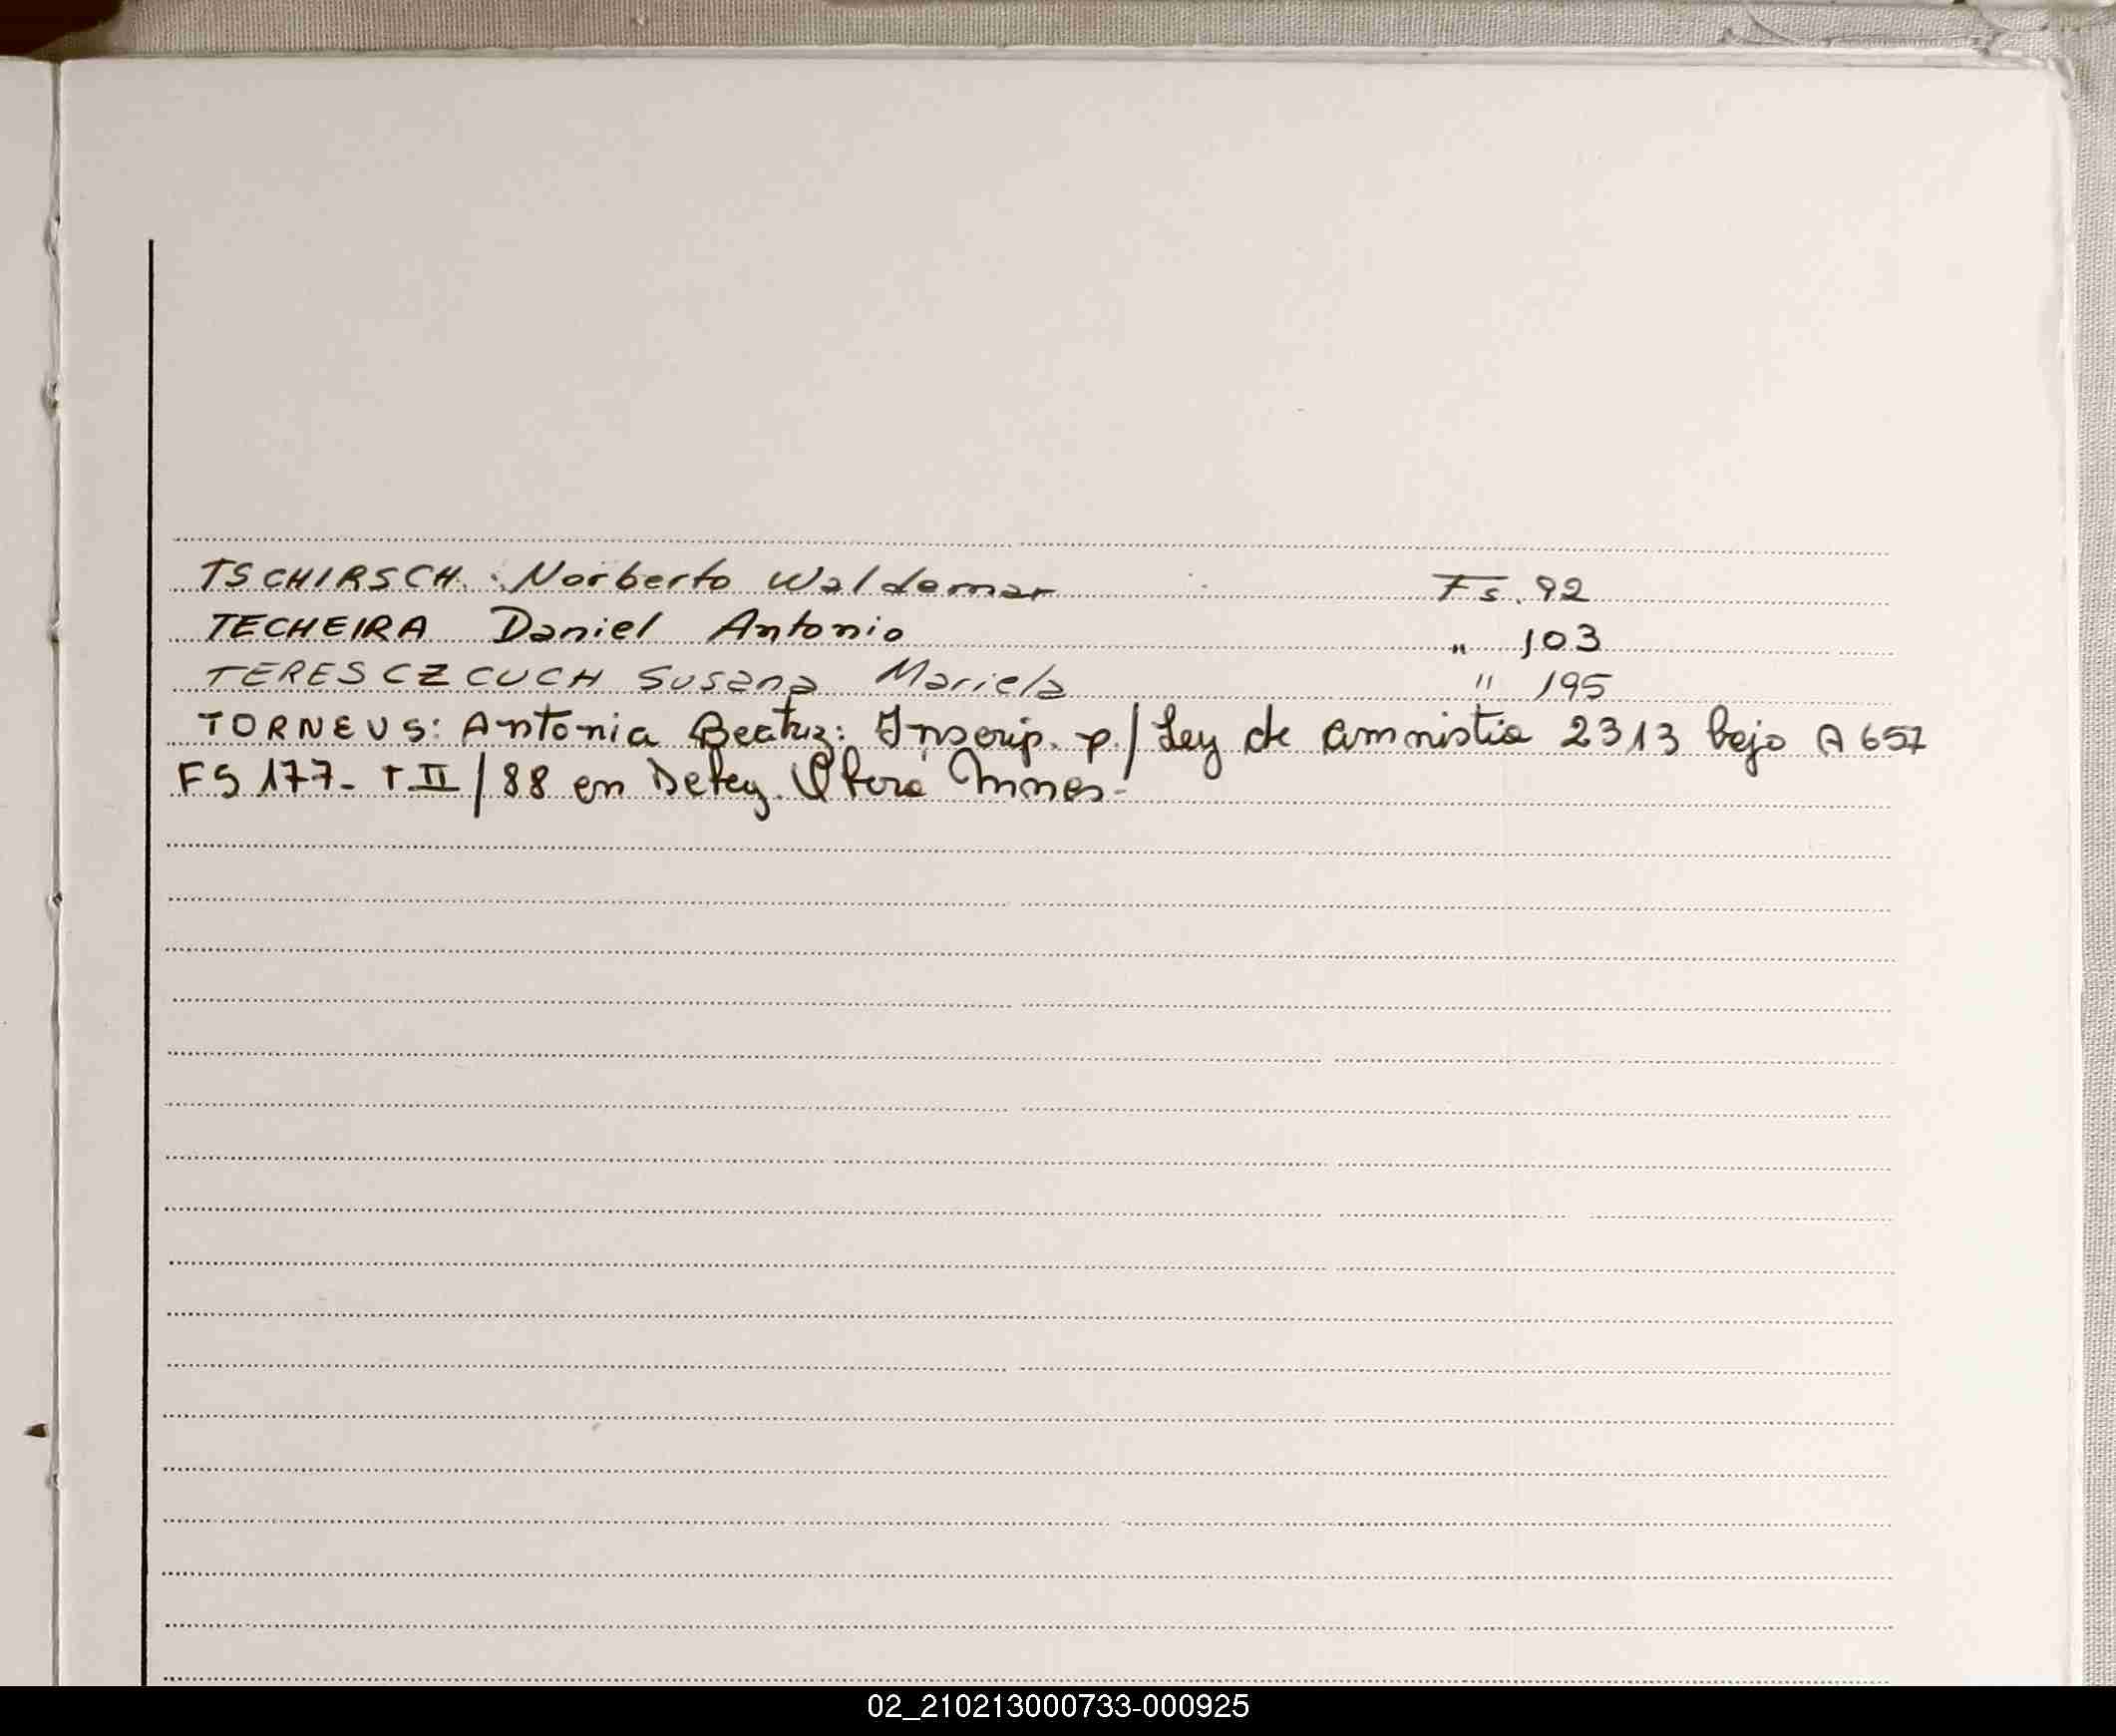 TSCHIRSCH. Norberto Waldemar Fs. 92
TECHEIRA Daniel Antonio " 103
TERESCZCUCH Susana Mariela " 195
TORNEUS: Antonia Beatriz: Inscrip. p./ Ley de amnistia 2313 bajo A 657
FS 177- T II/88 en Deleg. Oberá Mnes-
02_210213000733-000925